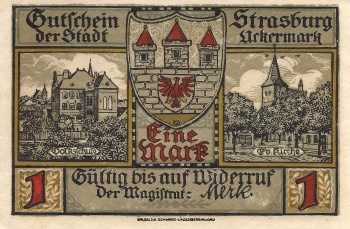 Gutschein
der Stadt
Strasburg
Uckermark
Volksschule
Ev. Kirche
Eine
Mark
1
Gültig bis auf Widerruf
Der Magistrat: Merk.
1